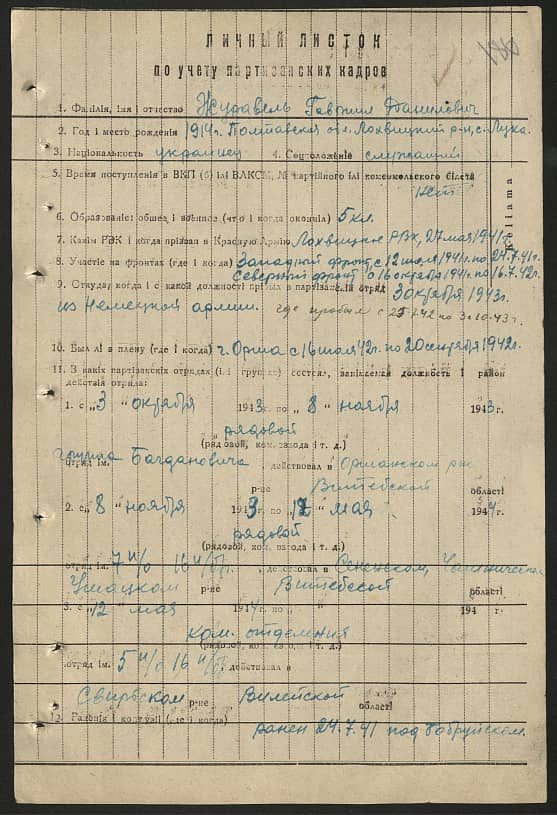 ЛИЧНЫЙ ЛИСТОК
по учету партизанских кадров
1. Фамілія, імя і отчество Журавель Гавриил Данилович
2. Год і место рождения 1914г. Полтавская обл. Лохвицкий р-н, с. Лука.
3. Національность украинец 4. Соцположеніе служащий
5. Время поступленія в ВКП (б) ілі ВЛКСМ, № партійного ілі комсомольского білета
нет
6. Образованіе: общее і военное (что і когда окончіл) 5 кл.
7. Какім РВК і когда прізван в Красную Армію Лохвицкий РВК, 27 мая 1941г.
8. Участіе на фронтах (где і когда) Западный фронт с 12 июля 1941г. по 24.7.41г.
Северный фронт с 16 октября 1941г. по 16.7.42г.
9. Откуда, когда і с какой должності прінят в партізанскій отряд 3 октября 1943г.
из Немецкой армии. где пробыл с по 3.10.43г.
10. Был лі в плену (где і когда) г. Орша с 16 июля 42г. по 20 сентября 1942г.
11. В какіх партізанскіх отрядах (і группах) состоял, должность і район
действія отряда:
1. с „3 “ октября 1943г. по „8 “ ноября 1943г.
рядовой
(рядовой, ком. взвода і т. д.)
группа отряд ім. Багдановича, действовал в Оршанском р-не
р-не Витебской області
2. с „8 “ ноября 1943 г. по „12 “ мая 1944г.
рядовой
(рядовой, ком. взвода і т. д.)
отряд ім. 7 16 , действовал в Сенненском,
Ушацком р-не Витебской області
3. с „12 “ мая 1944г. по „ “ 194 г.
ком. отделения
(рядовой, ком. взвода і т. д.)
отряд ім. 5 16 действовал в
Свирском р-не Вилейской області
12. Раненія і контузіі (где і когда)
ранен 24.7.41 под Бобруйском.